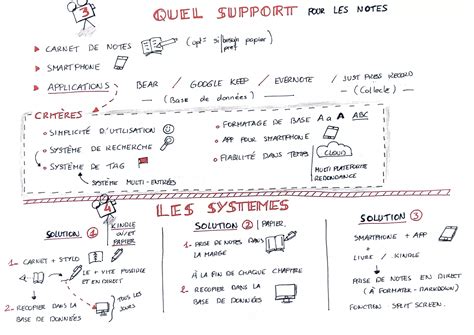 3 QUEL SUPPORT POUR LES NOTES
CARNET DE NOTES (opt= si besoin papier)
pref
SMARTPHONE
APPLICATIONS BEAR / GOOGLE KEEP / EVERNOTE / JUST PRESS RECORD
(Base de données) (Collecte)
CRITÈRES
SIMPLICITÉ D'UTILISATION
SYSTÈME DE RECHERCHE
SYSTÈME DE TAG
SYSTÈME MULTI-ENTRÉES
FORMATAGE DE BASE A a A ABC
APP POUR SMARTPHONE
FIABILITÉ DANS TEMPS
CLOUD
MULTI PLATEFORME
REDONDANCE
4 LES SYSTEMES
SOLUTION 1
KINDLE
OU/ET
PAPIER
1- CARNET + STYLO
LE + VITE POSSIBLE
ET EN DIRECT
2- RECOPIER DANS LA
BASE DE DONNÉES
TOUS LES
JOURS
SOLUTION 2 PAPIER
1- PRISE DE NOTES DANS
LA MARGE
À LA FIN DE CHAQUE CHAPITRE
2- RECOPIER DANS LA
BASE DE DONNÉES
SOLUTION 3
SMARTPHONE + APP
LIVRE / KINDLE
PRISE DE NOTES EN DIRECT
(À FORMATER - MARKDOWN)
FONCTION SPLIT SCREEN